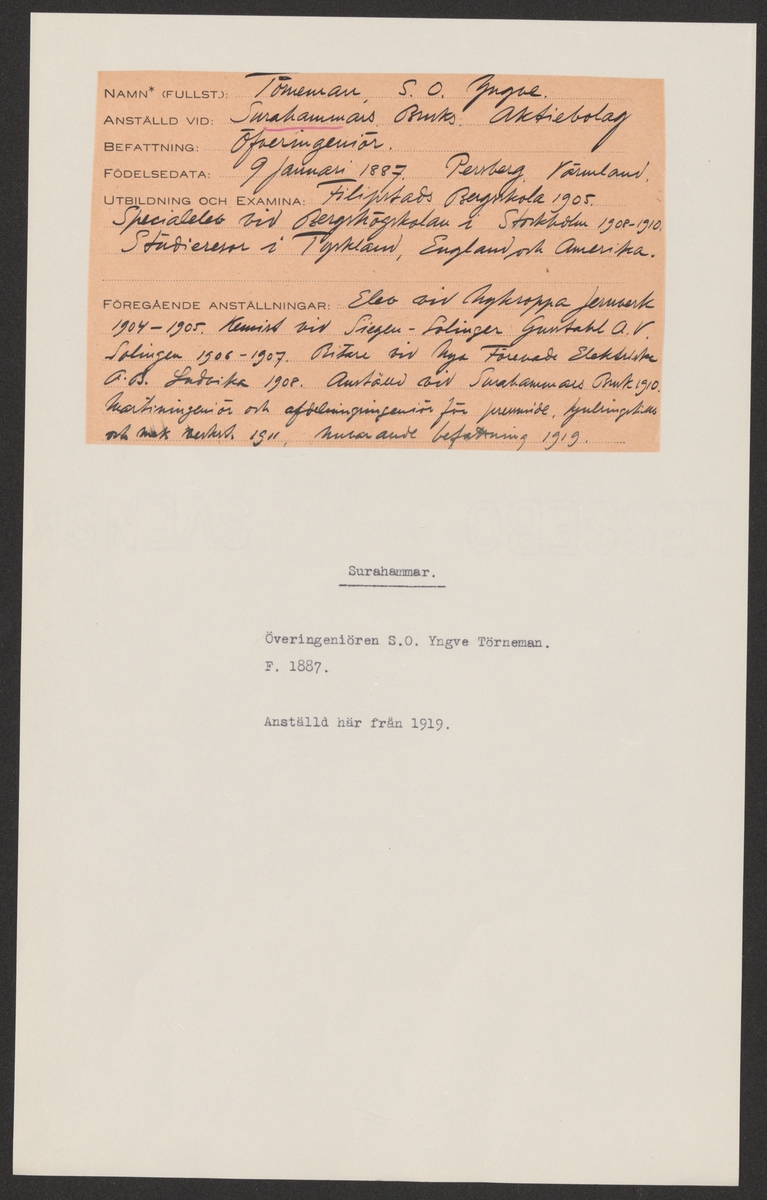 NAMN* (FULLST.): Törneman, S. O. Yngve.
ANSTÄLLD VID: Surahammars Bruks Aktiebolag
BEFATTNING: Öfveringeniör.
FÖDELSEDATA: 9 Januari 1887. Persberg, Värmland.
UTBILDNING OCH EXAMINA: Filipstads Bergskola 1905.
Specialelev vid Bergshögskolan i Stockholm 1908-1910.
Studieresor i Tyskland, England och Amerika.
FÖREGÅENDE ANSTÄLLNINGAR: Elev vid Nykroppa Jernverk
1904-1905. Kemist vid Siegen-Solinger Gusstahl A.V.
Solingen 1906-1907. Ritare vid Nya Förenade Elektriska
A.B. Ludvika 1908. Anställd vid Surahammars Bruk 1910.
Martiningeniör och afdelningsingeniör för
och mek verkst. 1911, nuvarande befattning 1919.
Surahammar.
Överingeniören S.O. Yngve Törneman.
F. 1887.
Anställd här från 1919.